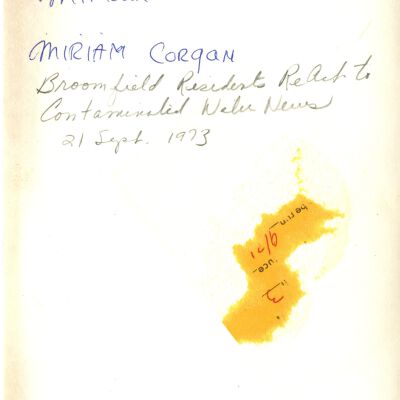 MIRIAM CORGAN
Broomfield Residents React to
Contaminated Water News
21 Sept. 1973
9/21
3